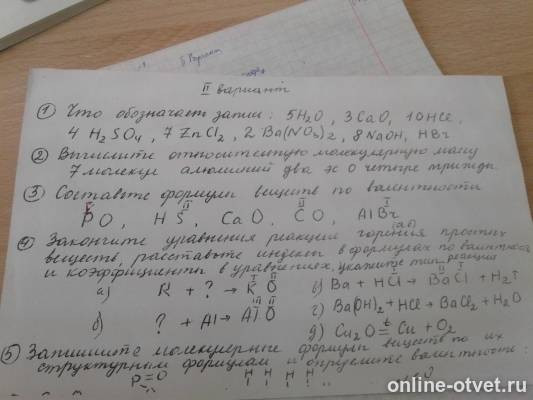 II вариант
① Что обозначает запись: 5H2O, 3CaO, 10HCl,
4 H2SO4, 7 ZnCl2, 2 Ba(NO3)2, 8NaOH, HBr
② Вычислите относительную молекулярную массу
7 молекул алюминий два эс о четыре трижды.
③ Составьте формулы веществ по валентности
PO, HS, CaO, CO, AlBr
II II I
④ Закончите уравнения реакции горения простых
веществ, расставьте индексы в формулах по валентности
и коэффициенты в уравнениях, укажите тип реакции
а) K + ? → K O
в) Ba + HCl → BaCl + H2↑
б) ? + Al → Al O
г) Ba(OH)2 + HCl → BaCl2 + H2O
д) Cu2O = Cu + O2
⑤ Запишите молекулярные формулы веществ по их
структурным формулам и определите валентность:
P=O H H H H
online-otvet.ru